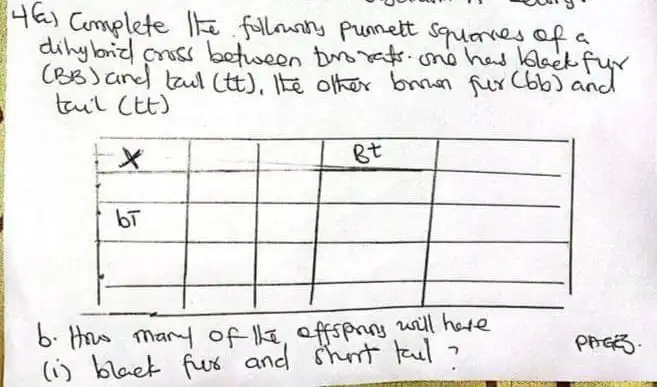 4(a) Complete the following punnett squares of a
dihybrid cross between two rats. one has black fur
(BB) and tail (tt), the other brown fur (bb) and
tail (tt)
X Bt
bT
b. How many of the offsprins will have
(i) black fur and short tail ?
PAGE3.